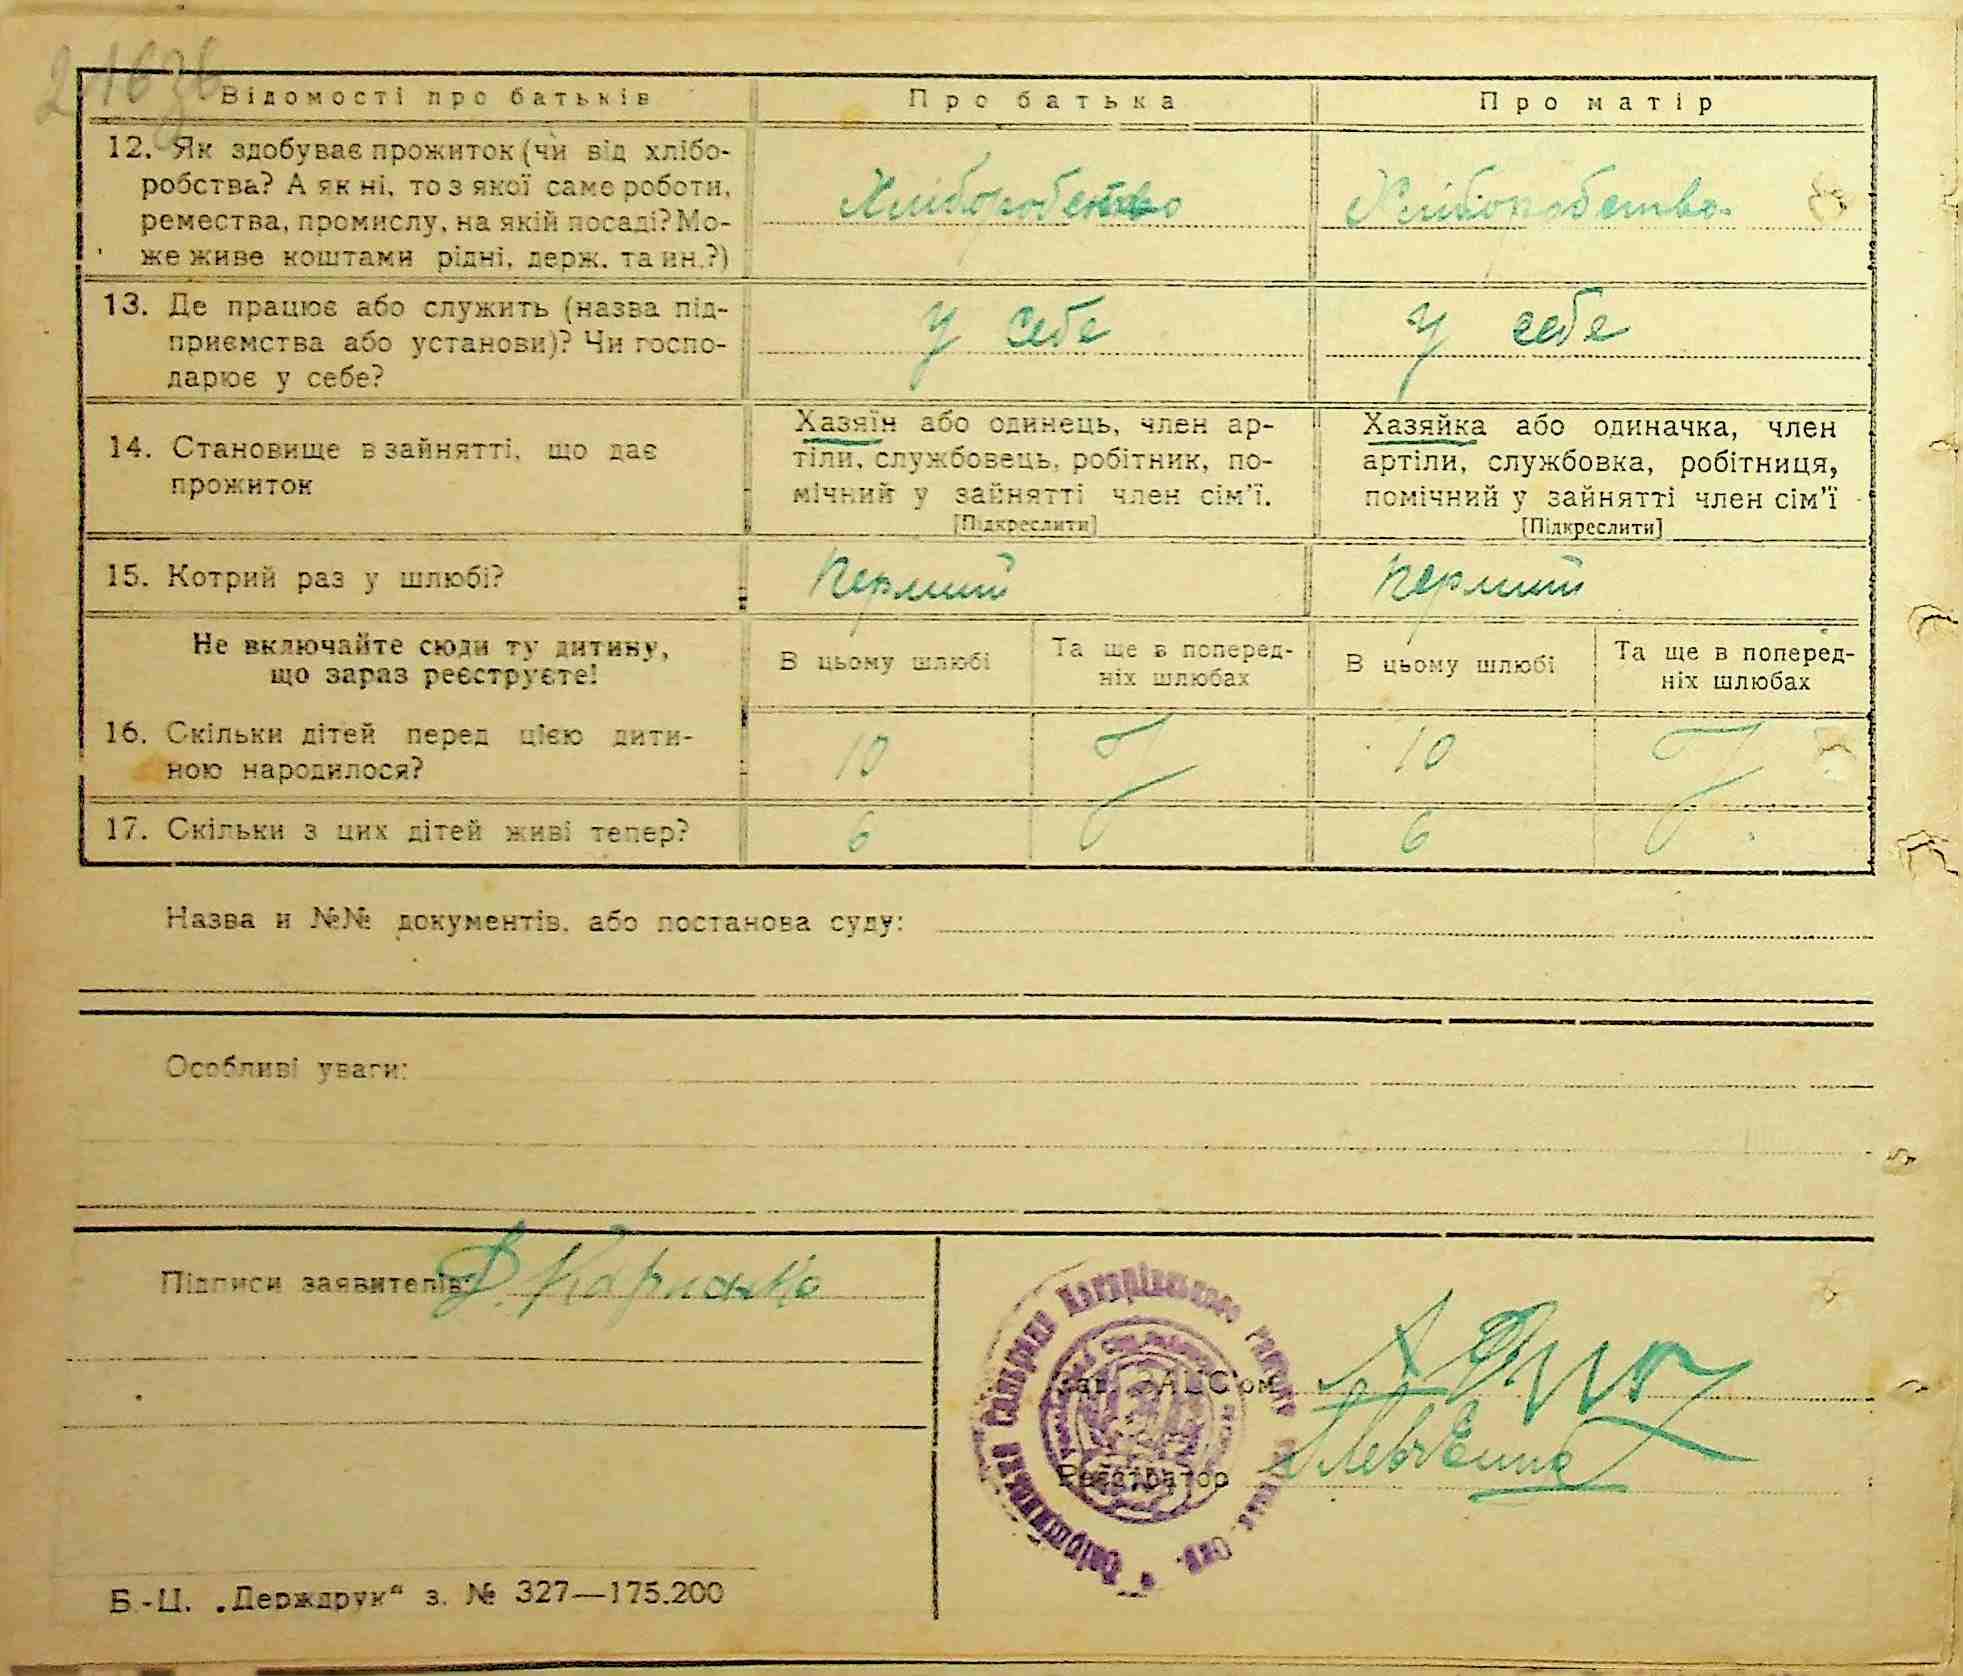 216зв
Відомості про батьків
Про батька
Про матір
12. Як здобуває прожиток (чи від хлібо-
робства? А як ні, то з якої саме роботи,
ремества, промислу, на якій посаді? Мо-
же живе коштами рідні, держ. та ин.?)
Хліборобство
Хліборобство
13. Де працює або служить (назва під-
приємства або установи)? Чи госпо-
дарює у себе?
У себе
У себе
14. Становище в зайнятті, що дає
прожиток
Хазяїн або одинець, член ар-
тіли, службовець, робітник, по-
мічний у зайнятті член сім'ї.
[Підкреслити]
Хазяйка або одиначка, член
артіли, службовка, робітниця,
помічний у зайнятті член сім'ї
[Підкреслити]
15. Котрий раз у шлюбі?
Перший
Перший
Не включайте сюди ту дитину,
що зараз реєструєте!
В цьому шлюбі
Та ще в поперед-
ніх шлюбах
В цьому шлюбі
Та ще в поперед-
ніх шлюбах
16. Скільки дітей перед цією дити-
ною народилося?
10
10
17. Скільки з цих дітей живі тепер?
6
6
Назва и №№ документів, або постанова суду:
Особливі уваги:
Підписи заявителів:
Зав. ЗАГС'ом
Реєстратор
Б.-Ц. „Держдрук“ з. № 327—175.200